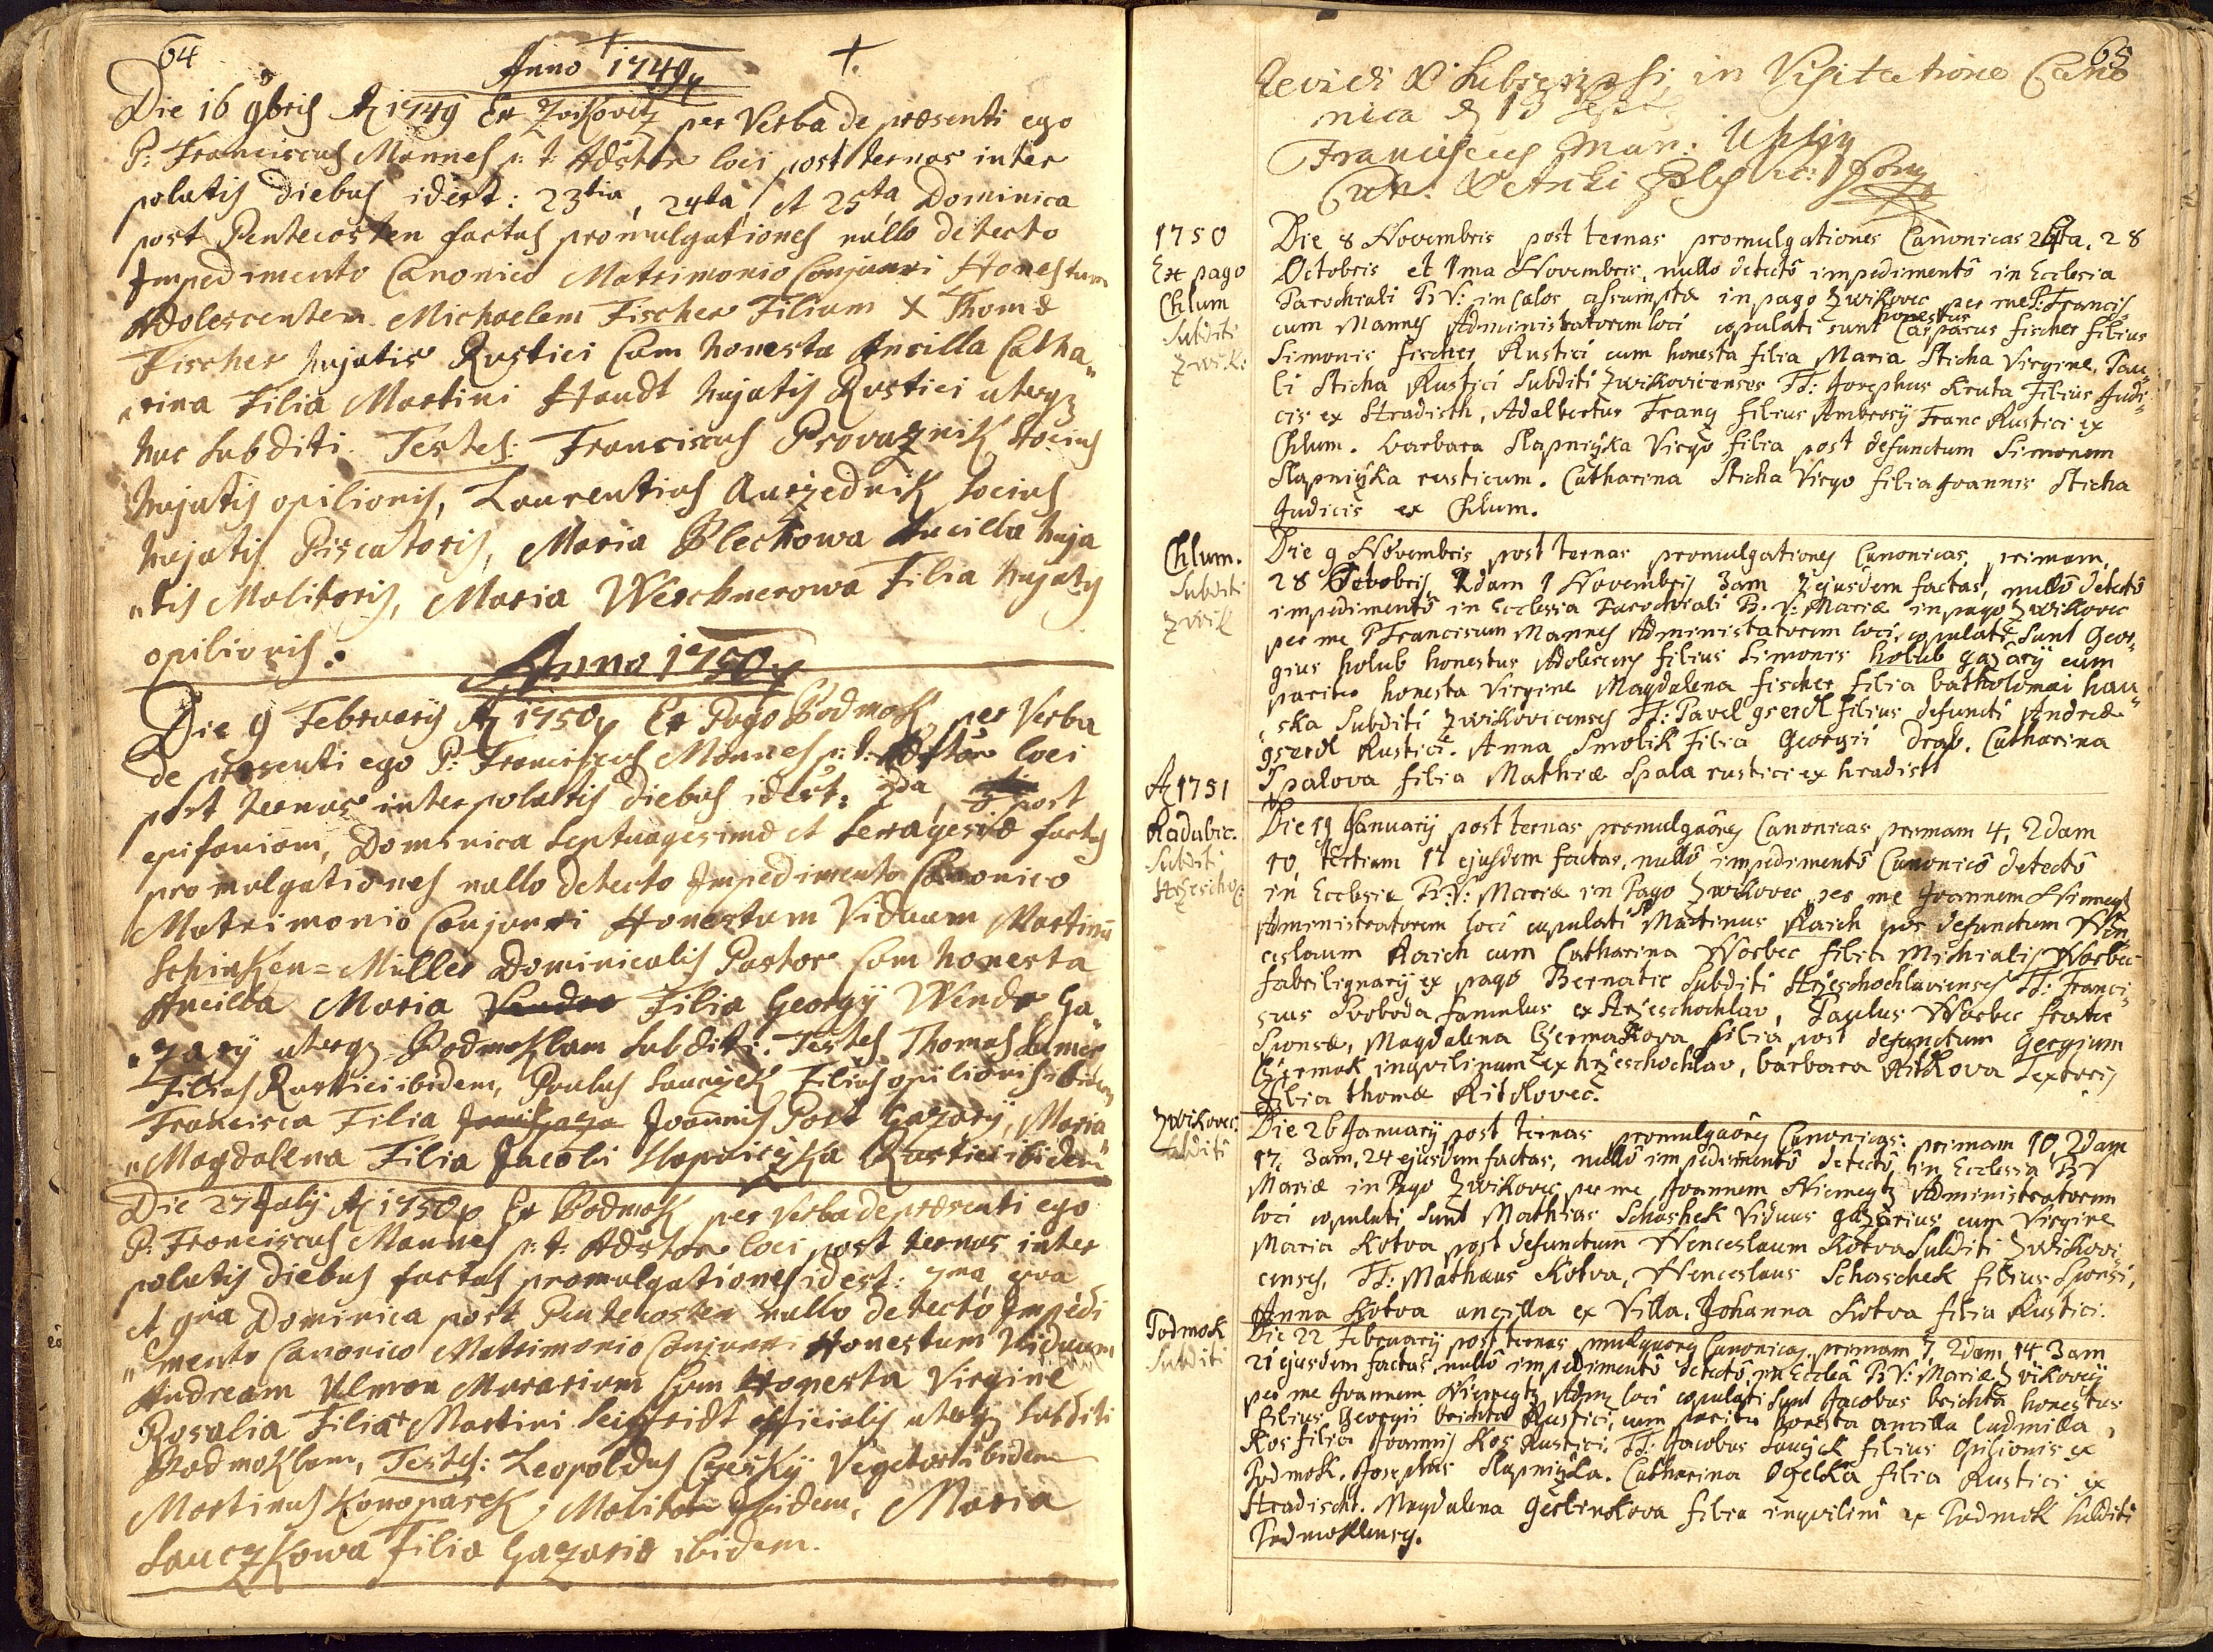 64
Anno 1749
Die 16 9bris A 1749 Ex Zwikovetz per Verba de præsenti ego
P: Franciscus Mannes p: t: Adstor loci post ternas inter
polatis diebus idest: 23tia, 24ta, et 25ta Dominica
post Pentecosten factas promulgationes nullo detecto
Impedimento Canonico Matrimonio Conjunxi Honestum
Adolescentem Michaelem Fischer Filium X Thomæ
Fischer hujatis Rustici Cum honesta Ancilla Catha„
„rina Filia Martini Handt hujatis Rustici uterqz
huc Subditi. Testes: Franciscus Provaznik Socius
hujatis opilionis, Laurentius Aurzednik Socius
hujatis Piscatoris, Maria Plechowa Ancilla huja
„tis Molitoris, Maria Werchnerowa Filia hujatis
opilionis.
Anno 1750
Die 9 February A 1750 Ex Pago Podmok, per Verba
de præsenti ego P: Franciscus Mannes p: t: Adstor loci
post ternas interpolatis diebus idest: 2da, post
epifaniam, Dominica Septuagesimæ et Sexagesimæ factas
promulgationes nullo detecto Impedimento Canonico
Matrimonio Conjunxi Honestum Viduum Martinū
Schinken=Miller Dominicalis Pastor Cum honesta
Ancilla Maria Filia Georgÿ Wendr Ga„
„zarÿ uterqz Podmoklam Subditi. Testes Thomas
Filius Rustici ibidem, Paulus Sauczek Filius opilionis ibidem
Francisca Filia Joannis Post Gazarÿ, Maria
„Magdalena Filia Jacobi Slapniczka Rustici ibidem
Die 27 Julÿ A 1750 Ex Podmok per Verba de præsenti ego
P: Franciscus Mannes p: t: Adstor loci post ternas inter
polatis diebus factas promulgationes idest: 7ma, 8va
et 9na Dominica post Pentecosten nullo detecto Impedi
„mento Canonico Matrimonio Conjunxi Honestum Viduum
Andream Ulman Murarium Cum Honesta Virgine
Rosalia Filia Martini Seiffridt officialis uterqz Subditi
Podmoklam, Testes: Leopoldus Czesky Vegetor ibidem
Martinus Konopasek Molitor ibidem, Maria
Sauczkowa Filia Gazaris ibidem.
65
Revidi & Subscripsi in Visitatione Cano
nica d 13
Franciscus Uhlir
1750
Ex pago
Chlum
Subditi
Zwik:
Die 8 Novembris post ternas promulgationes Canonicas 26ta, 28
Octobris et 1ma Novembris, nullo detectô impedimentô in Ecclesia
Parochiali B V: in Cælos assumptæ in pago Zwikovec per me P: Francis
cum Mannes Administratorem loci copulati sunt honestus Casparus fischer filius
Simonis fischer Rustici cum honesta filia Maria Sticha Virgine, Pau„
li Sticha Rustici Subditi Zwikovicenses TT: Josephus Kruta Filius Judi„
cis ex Hradisth, Adalbertus Franq filius Ambrosÿ Franc Rustici ex
Chlum. barbara Slapniczka Virgo filia post defunctum Simonem
Slapniczka rusticum. Catharina Sticha Virgo filia Joannis Sticha
Judicis ex Chlum.
Chlum.
Subditi
Zwik
Die 9 Novembris post ternas promulgationes Canonicas, primam,
28 Octobris 2dam 1 Novembris 3am ejusdem factas, nullô detectô
impedimentô in Ecclesia Parochiali B. V: Mariæ in pago Zwikovec
per me P Franciscum Mannes Administratorem loci, copulati sunt Geor„
gius holub honestus Adolescens filius Simonis holub gazârÿ cum
pariter honesta Virgine Magdalena fischer filia batholomæi hau„
„ska Subditi Zwikovicenses TT: Pavel gserdl filius defuncti Andreæ
gserdl Rustici. Anna Smolik Filia Georgii Drab. Catharina
Spalova filia Mathiæ Spala rustici ex hradisst
A 1751
Radubic.
Subditi
Die 19 January post ternas promulgaôes Canonicas primam 4, 2dam
10, tertiam 17 ejusdem factas, nullô impedimentô Canonicô detectô
in Ecclesia B: V: Mariæ in Pago Zwikovec per me Joannem Niemegtz
Administratorem loci copulati Martinus Raich post defunctum Wen
ceslaum Raich cum Catharina Worbec filia Michaelis Worbec
fabrilignarÿ ex pago Bernatic Subditi Hrzeschochlavienses TT: Franci„
scus Svoboda famulus ex Hrzeschochlav, Paulus Worbec frater
Sponsæ, Magdalena Czermakova filia post defunctum Georgium
Czermak inqvilinum ex hrzeschochlav, barbara Ritkova textoris
filia thomæ Ritkovec.
Zwikovec.
Subditi
Die 26 January post ternas promulgaôes Canonicas: primam 10, 2dam
17, 3am, 24 ejusdem factas, nullô impedimentô detectô, in Ecclesia B V
Mariæ in Pago Zwikovec per me Joannem Niemegtz Administratorem
loci copulati Sunt Mathias Schashek Viduus gazarius cum Virgine
Maria Kotva post defunctum Wenceslaum Kotva Subditi Zwikovi„
censes, TT: Mathæus Kotva, Wenceslaus Schaschek filius Sponsi,
Anna Kotva ancilla ex Villa. Johanna Kotva filia Rustici.
Podmok
Subditi
Die 22 February post ternas pmulgaoes Canonicas, primam 7, 2dam 14 3am
21 ejusdem factas, nullô impedimentô detectô in Ecclêa B V: Mariæ Zwikovecÿ
per me Joannem Niemegtz Admz loci copulati Sunt Jacobus brichta honestus
filius Georgii brichta Rustici, cum pariter honesta ancilla ludmilla,
Kos filia Joannis Kos Rustici. TT: Jacobus Sauczek filius Opilionis ex
Podmok. Josephus Slapniczka. Catharina Ogelka filia Rustici ex
Hradischt. Magdalena Gerlinkova filia inqvilini ex Podmok Subditi
Podmoklensez.